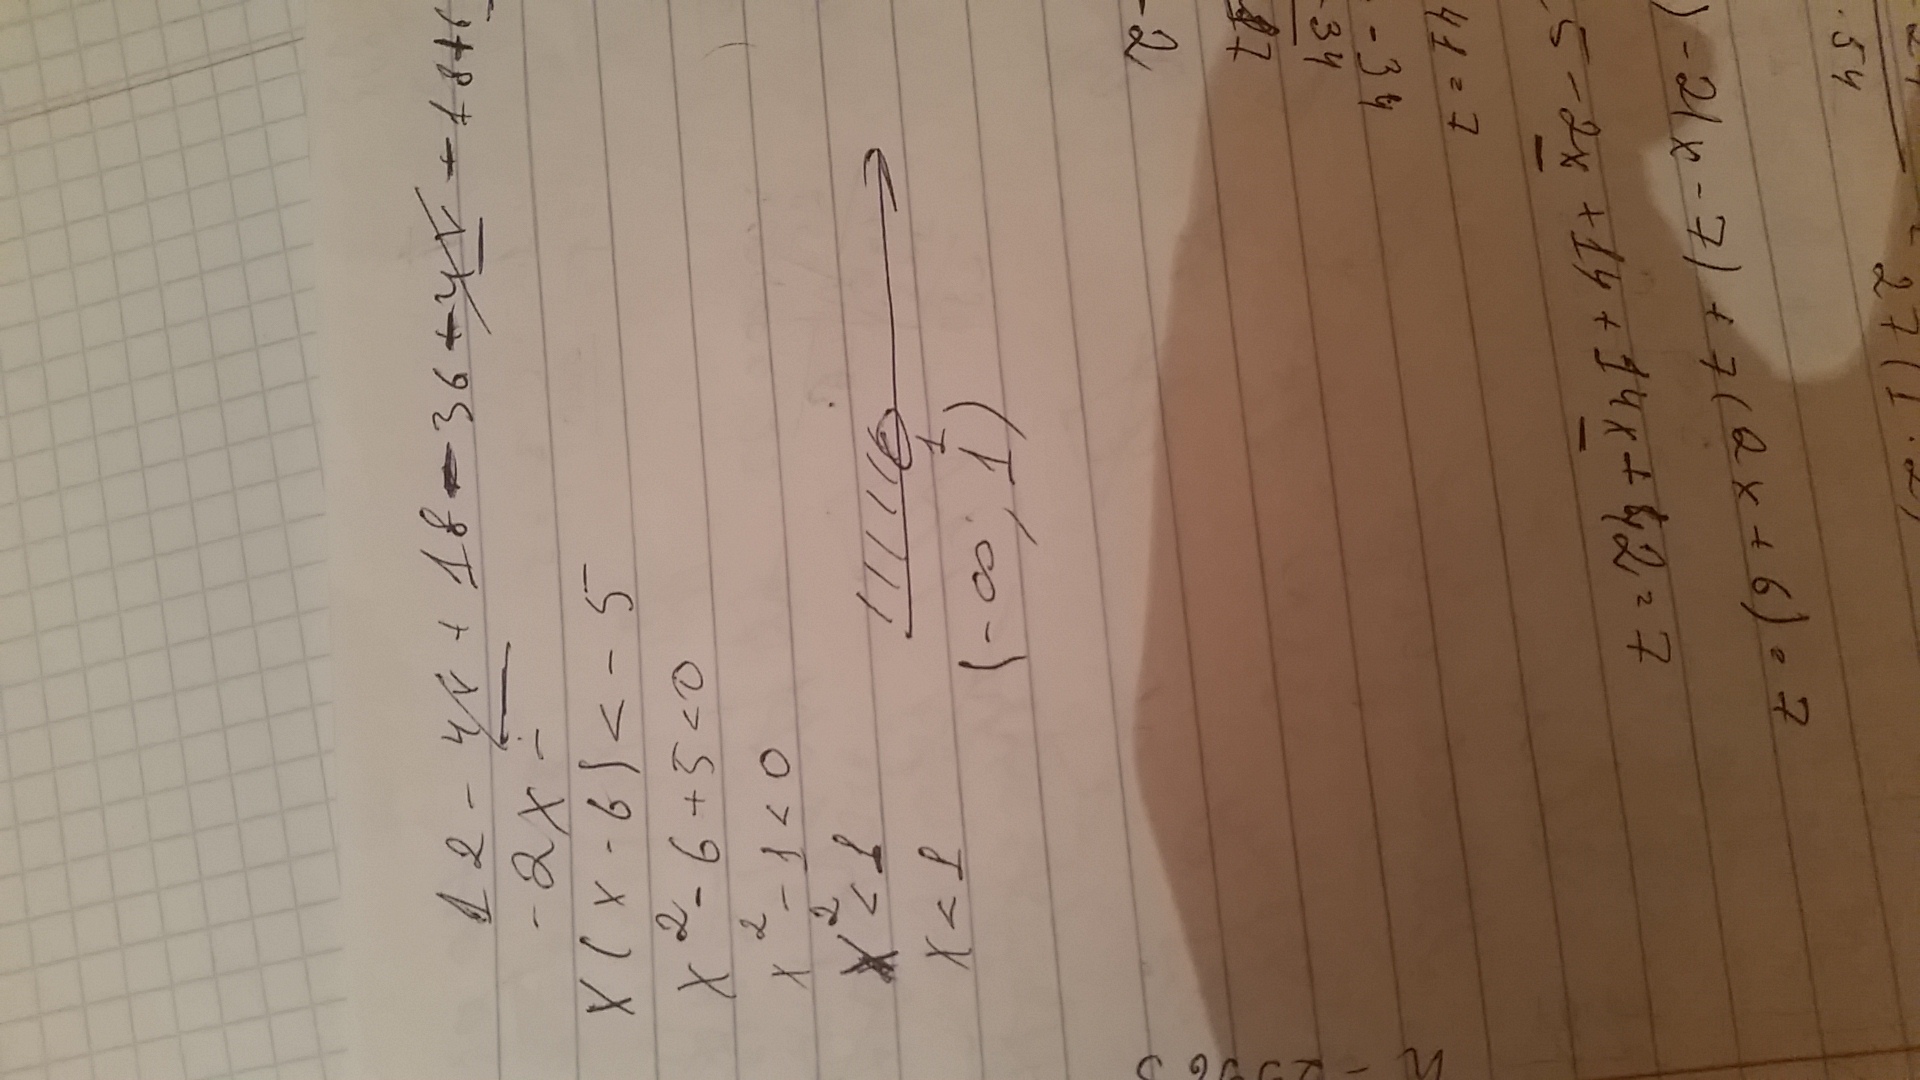 12 - 4x + 18 - 36 + 4x + 18 +
-2x -
x(x-6) < -5
x² - 6 + 5 < 0
x² - 1 < 0
x² < 1
x < 1
1
(-∞; 1)
27(1.2)
.54
) -2(x-7) + 7(2x+6) = 7
5 - 2x + 14 + 14x + 42 = 7
41 = 7
-34
-34
17
-2